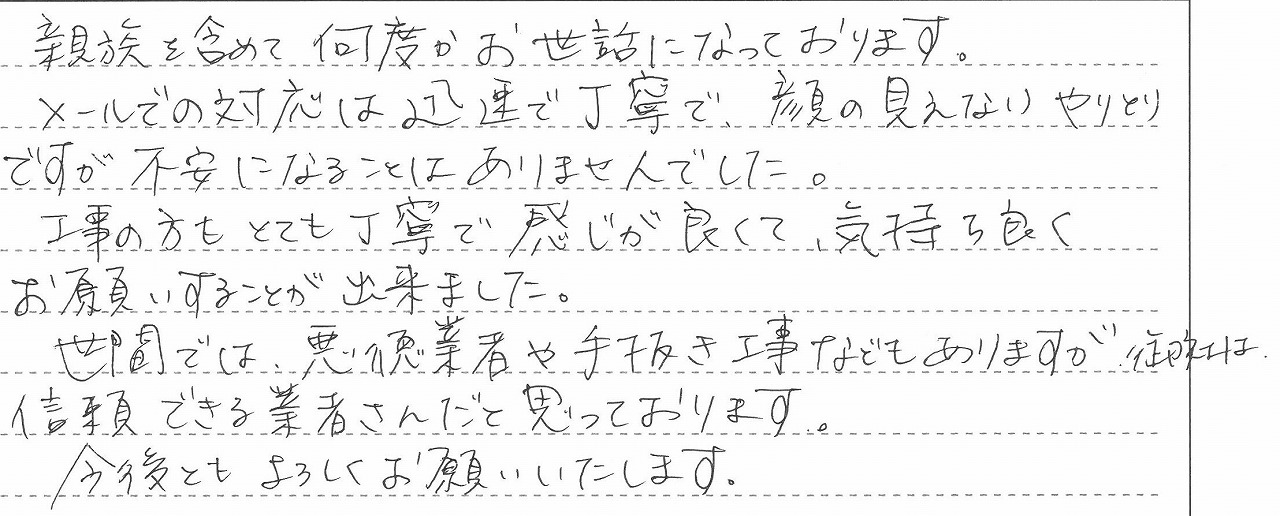 親族を含めて何度かお世話になっております。
メールでの対応は迅速で丁寧で、顔の見えないやりとり
ですが不安になることはありませんでした。
工事の方もとても丁寧で感じが良くて、気持ち良く
お願いすることが出来ました。
世間では、悪徳業者や手抜き工事などもありますが、御社は、
信頼できる業者さんだと思っております。
今後ともよろしくお願いいたします。